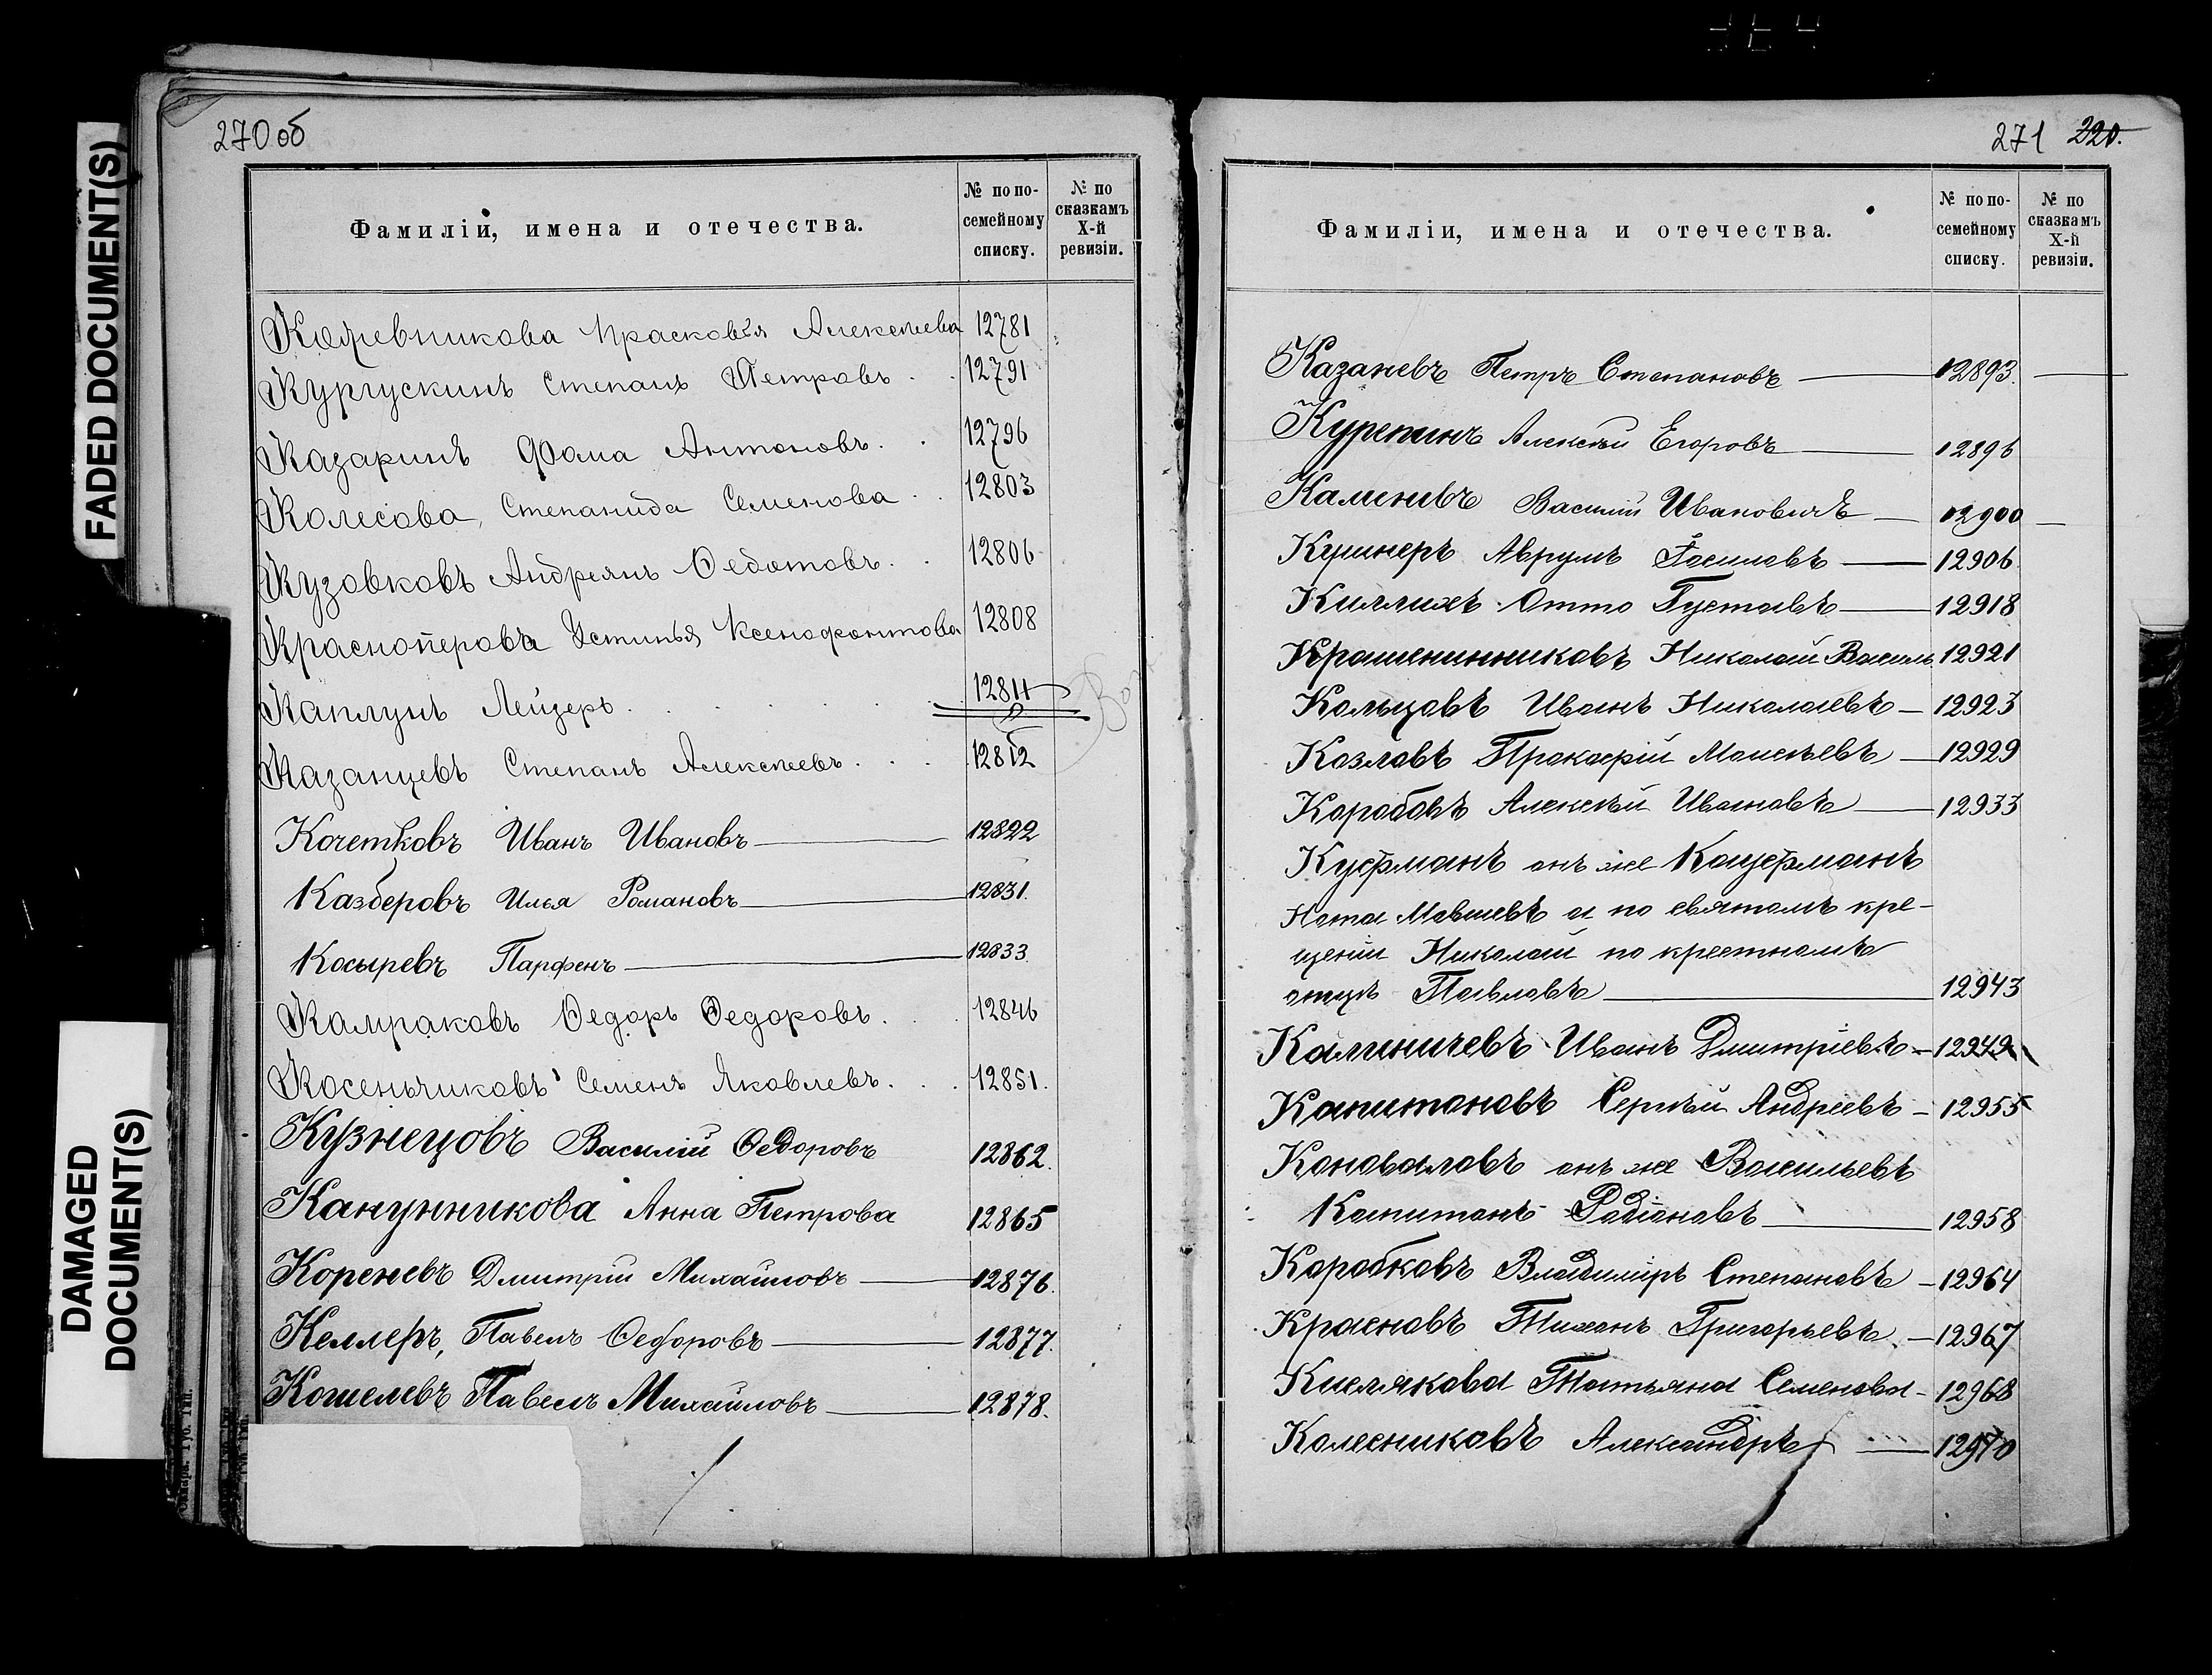 FADED DOCUMENT(S)
DAMAGED
DOCUMENT(S)
270 об
Фамиліи, имена и отечества.
№ по по-
семейному
списку.
№ по
сказкамъ
X-й
ревизіи.
Кожевникова Прасковья Алексеева 12781
Кургускинъ Степанъ Петровъ 12791
Казаринъ Фома Антоновъ 12796
Колесова Степанида Семенова 12803
Кузовковъ Андреянъ Ѳедотовъ 12806
Красноперова Устинья Ксенофонтова 12808
Каплунъ Лейзеръ 12811
Казанцевъ Степанъ Алексеевъ 12812
Кочетковъ Иванъ Ивановъ 12822
Казберовъ Илья Романовъ 12831.
Косыревъ Парфенъ 12833
Камраковъ Ѳедоръ Ѳедоровъ 12846
Косеньчиковъ Семенъ Яковлевъ 12851.
Кузнецовъ Василій Ѳедоровъ 12862.
Канунникова Анна Петрова 12865
Кореневъ Дмитрій Михайловъ 12876.
Келлеръ, Павелъ Ѳедоровъ 12877.
Кошелевъ Павелъ Михайловъ 12878.
271 220.
Фамиліи, имена и отечества.
№ по по-
семейному
списку.
№ по
сказкамъ
X-й
ревизіи.
Казаневъ Петръ Степановъ 12893.
Курепинъ Алексѣй Егоровъ 12896
Каменевъ Василій Ивановичъ 12900
Кушнеръ Аврумъ 12906
Киллихъ Отто Густавъ 12918
Крашенинниковъ Николай Василь 12921
Кольцовъ Иванъ Николаевъ 12923
Козловъ Прокофій Моисѣевъ 12929
Коробовъ Алексѣй Ивановъ 12933
Куфманъ онъ же Кауфманъ
Ната Мовшевъ а по святомъ кре-
щеніи Николай по крестномъ
отцѣ Павловъ 12943
Калиничевъ Иванъ Дмитріевъ 12949
Капитановъ Сергѣй Андреевъ 12955
Коноваловъ онъ же Васильевъ
Капитонъ Радіоновъ 12958
Коробковъ Владиміръ Степановъ 12964
Красновъ Тихонъ Григорьевъ 12967
Кислякова Татьяна Семенова 12968
Колесниковъ Александръ 12970